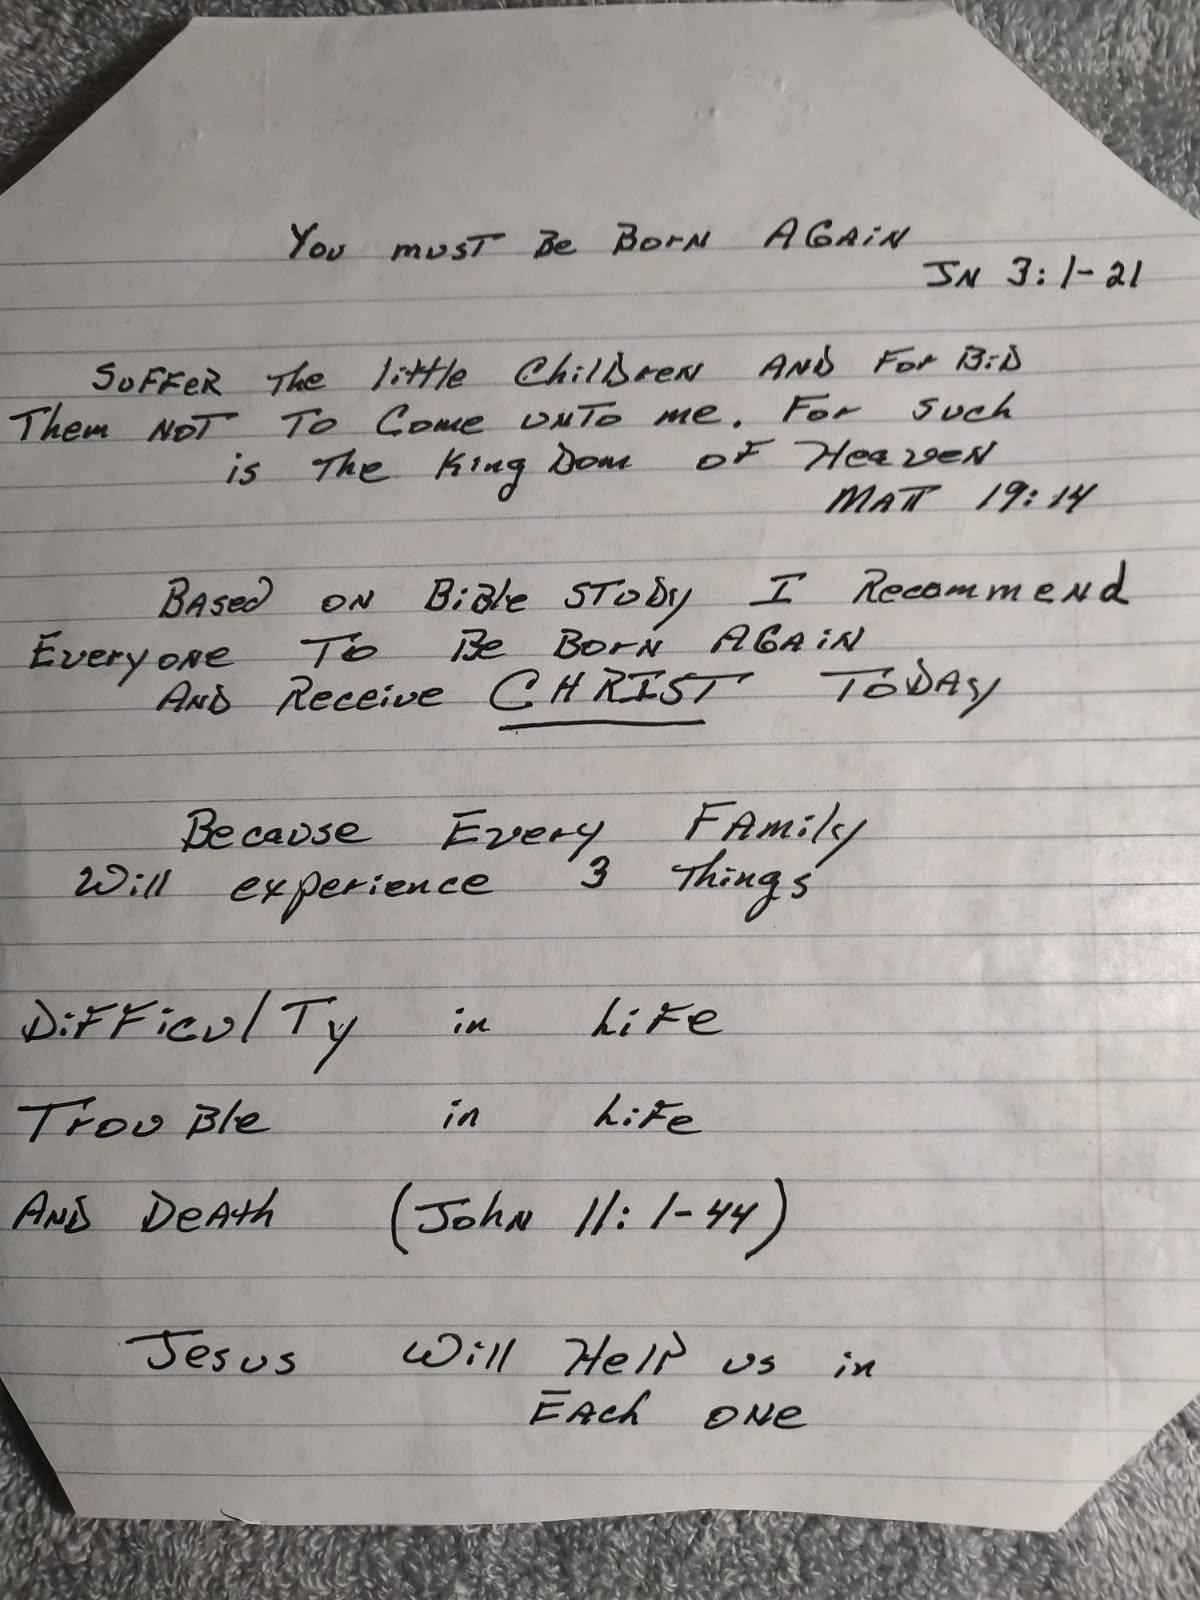 You must Be Born AGAiN
JN 3:1-21
SUFFER The little ChilDreN AND For BiD
Them NOT TO Come UNTO me. For such
is The King Dom OF HeaveN
MATT 19:14
BAsed ON BiBle STUDy I Recommend
Everyone To Be BorN AGAiN
AND Receive CHRIST ToDAy
Because Every FAmily
Will experience 3 Things
DiFFiculTy in LiFe
TrouBle in LiFe
AND DeAth (JohN 11:1-44)
Jesus Will HelP us in
EAch ONe